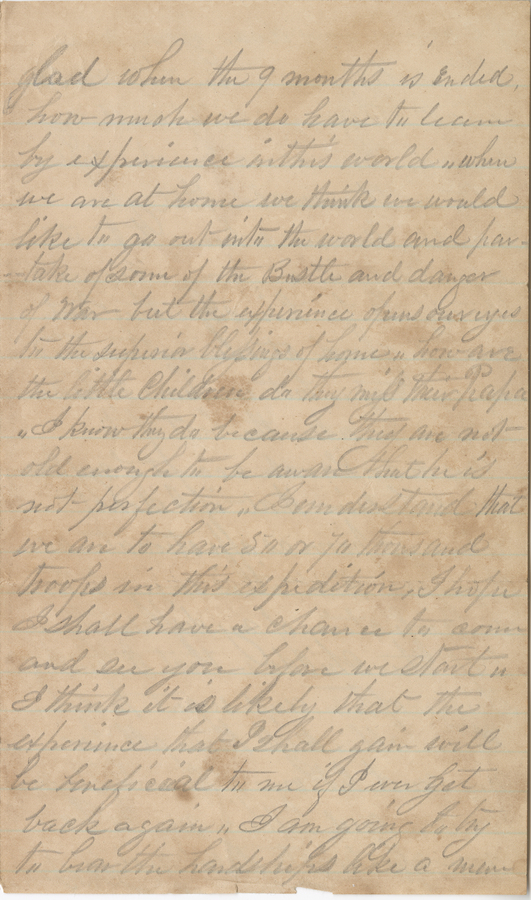 glad when the 9 months is ended,
how much we do have to learn
by experience in this world „ when
we are at home we think we would
like to go out into the world and par-
take of some of the Bustle and danger
of War but the experience opens our eyes
to the superior blessings of home „ how are
the little Children do they miss their Papa
„ I know they do because they are not
old enough to be aware that he is
not perfection „ I understand that
we are to have 50 or 70 thousand
troops in this expedition, I hope
I shall have a chance to come
and see you before we start „
I think it is likely that the
experience that I shall gain will
be beneficial to me if I ever get
back again „ I am going to try
to bear the hardships like a man